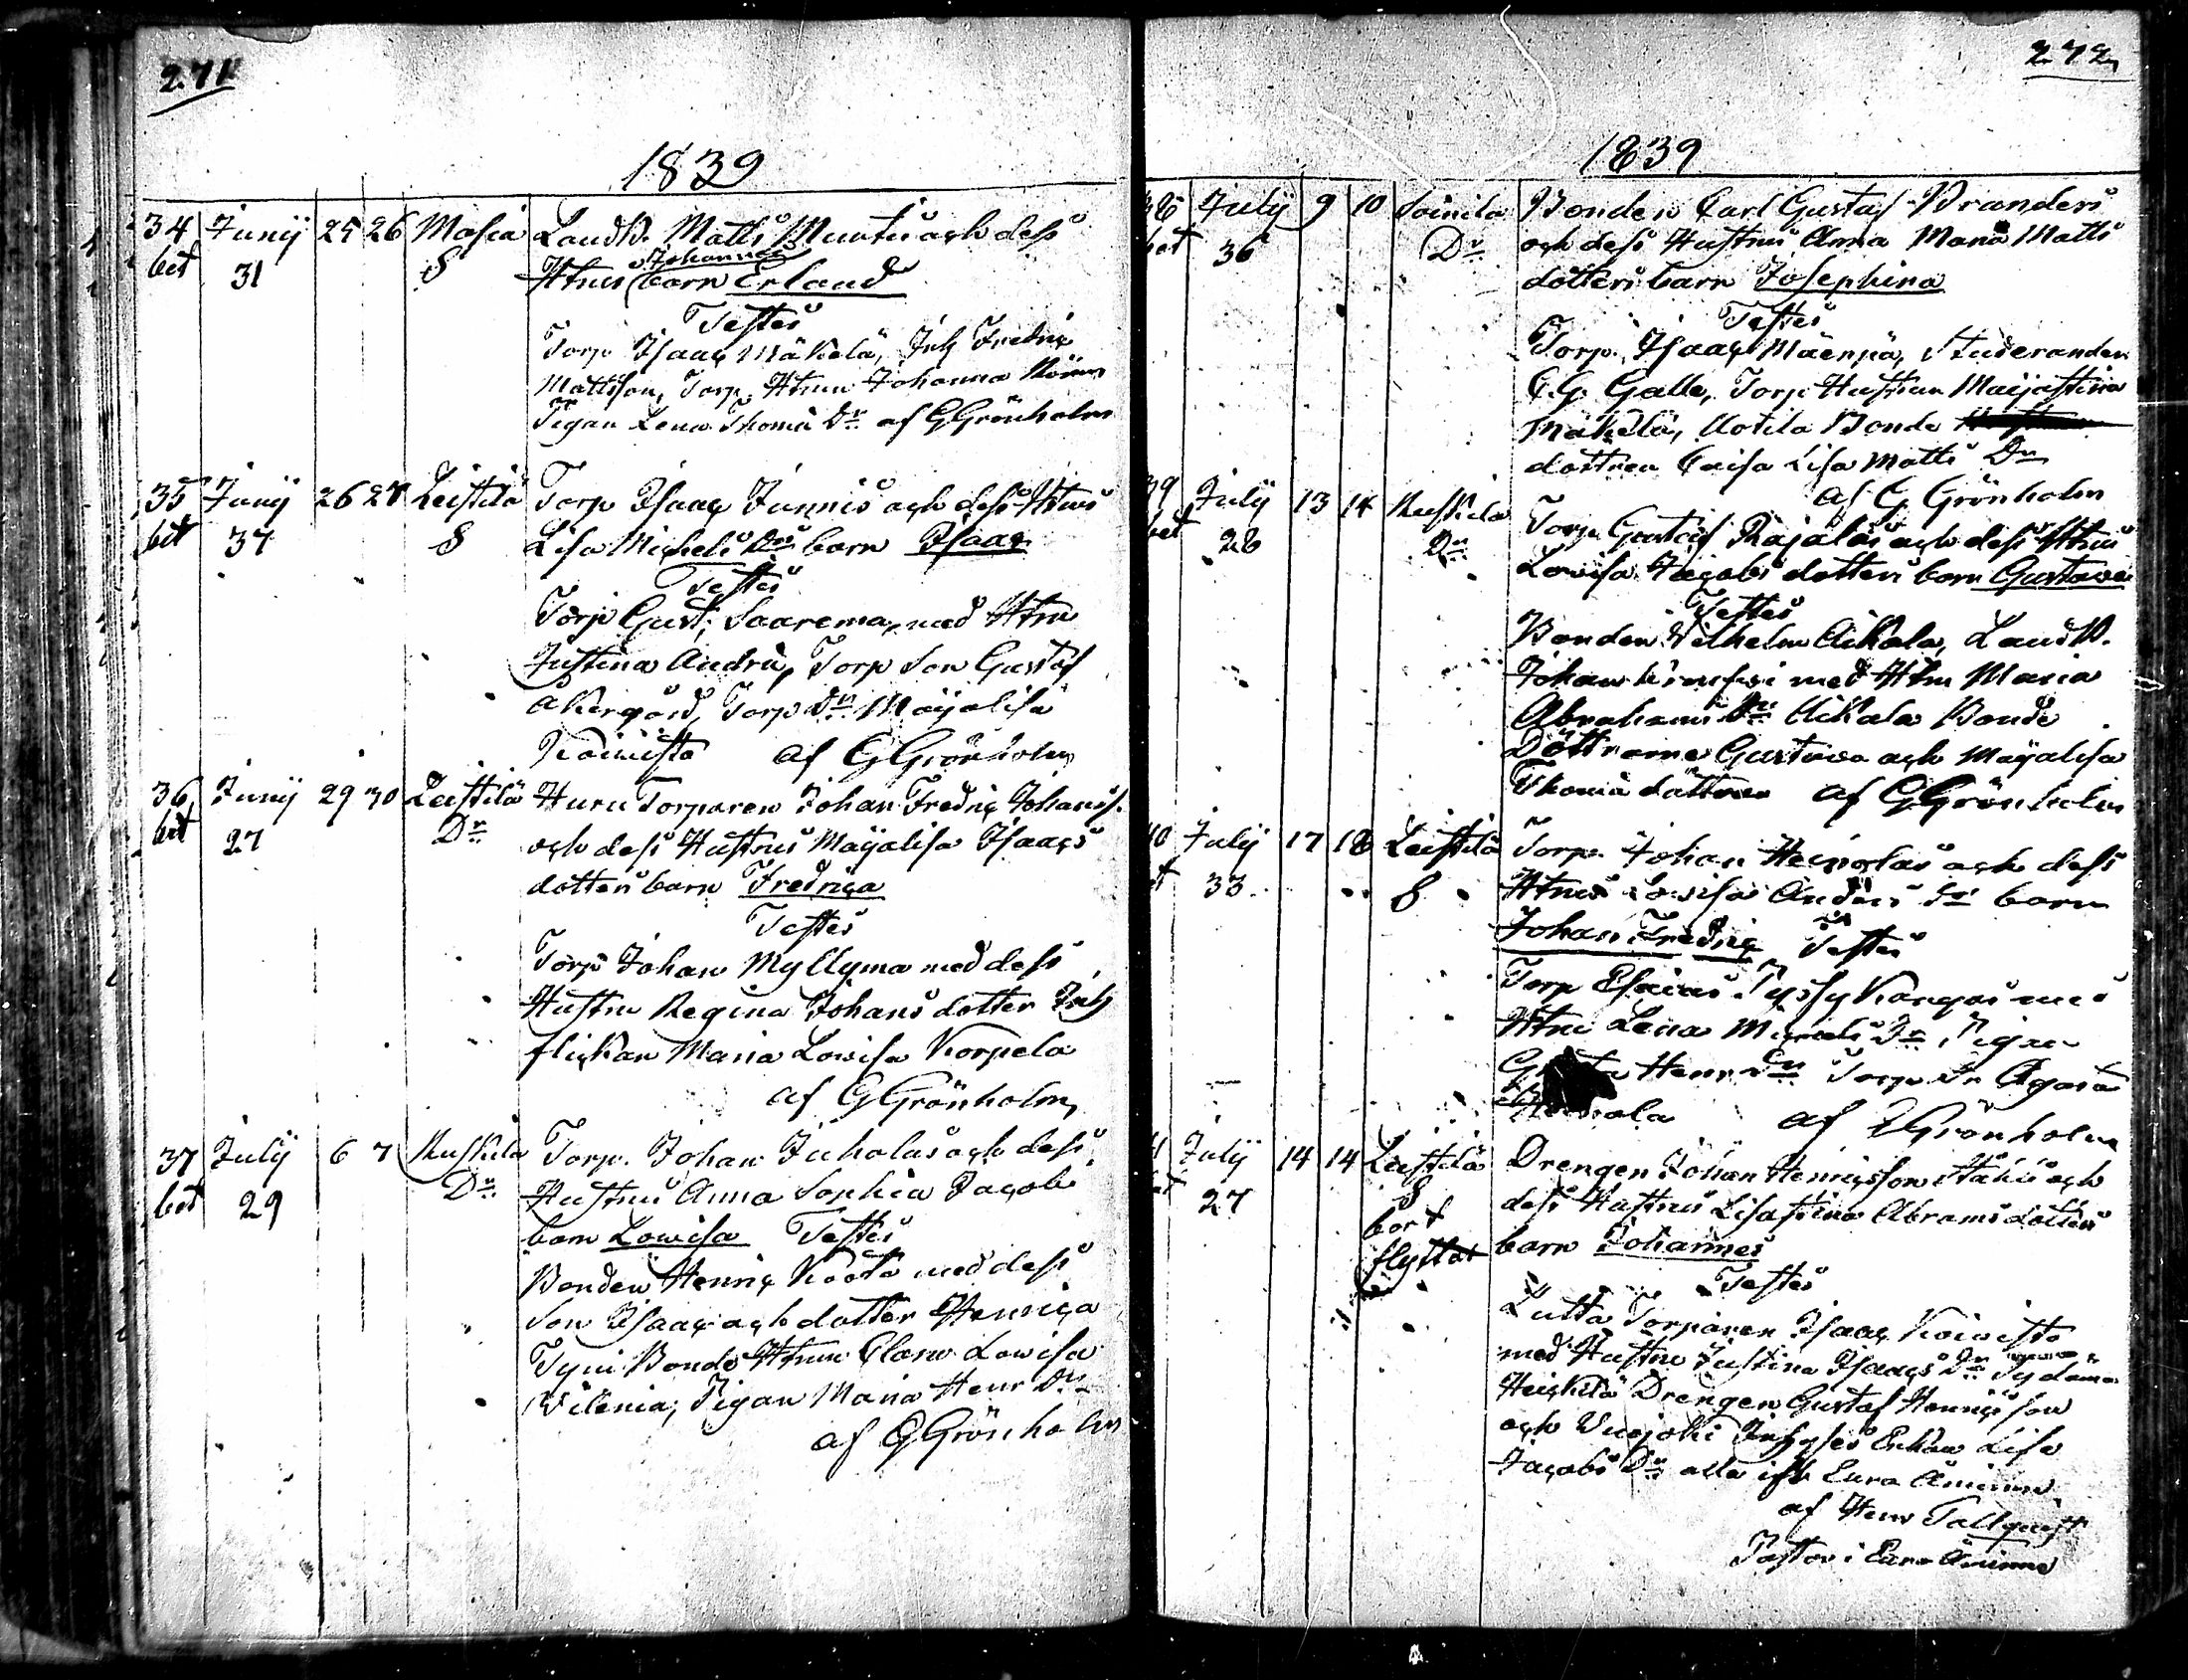 271
1839
34 Junij 25 26 Masia Landtb. Matts Muntis och dess
bet 31 S Hrus barn Johannes Erland
Testes
Torp. Isaac Mäkelä, Inh Fredric
Mattsson, Torp. Hrun Johanna
Pigan Lena Thomæ Dr. af G Grönholm
35 Junij 26 27 Leistilä Torp Isaac Junnis och dess Hrus
bet 37 S Lisa Michels Drs barn Isaac
Testes
Torp Gust. Saarema, med Hru
Justina Andr: Torp Son Gustaf
Åkergård, Torp Dr. Maijalisa
Koivisto af G Grönholm
36 Junij 29 30 Leistilä Huru Torparen Johan Fredric Johanss.
bet 27 Dr. och dess Hustrus Maijalisa Isaacs
dotters barn Fredrica
Testes
Torp Johan Myllyma med dess
Hustru Regina Johans dotter Inh
flickan Maria Lowisa Korpela
af G Grönholm
37 July 6 7 Ruskila Torp. Johan Juholas och dess
bet 29 Dr. Hustrus Anna Sophia Jacobs
barn Lowisa Testes
Bonden Henric Koota med dess
Son Isaac och dotter Henrica
Tyni Bonde Hrun Clara Lowisa
Wilenia, Pigan Maria Henr Dr.
af G Grönholm
272
1839
38 July 9 10 Soinila Bonden Carl Gustaf Branders
bet 36 Dr. och dess Hustrus Anna Maria Matts
dotters barn Josephina
Testes
Torp. Isaac Mäenpä, Studeranden
C.G. Galle, Torp. Hustrun Maijastina
Mäkelä, Uotila Bonde
dottren Caisa Lisa Matts Dr.
af G Grönholm
39 July 13 14 Ruskila Torp. Gustaf Rajalas och dess Hrus
bet 28 Dr. Lowisa Jacobs dotters barn Gustava
Testes
Bonden Wilhelm Aikala, Landtb.
Johan med Hru Maria
Abrahams Dr. Aikala Bonde
Döttrarne Gustava och Maijalisa
Thomæ döttrar af G Grönholm
40 July 17 18 Leistilä Torp. Johan Heinolas och dess
bet 33 S Hrus Lovisa Anders Drs barn
Johan Fredric Testes
Torp Esaias Pyssykangas med
Hru Lena Michels Dr. Pigan
Henr Dr. Torp Dr Agata
af G Grönholm
41 July 14 14 Leistilä Drengen Johan Henricsson Ståhls och
bet 27 S dess Hustrus Lisastina Abrams dotters
bort barn Johannes
flyttat
Testes
Lutta Torparen Isaac Koivisto
med Hustru Justina Isaacs Dr.
Heickilä Drengen Gustaf Henricsson
och Vuojoki Inhyses Enkan Lisa
Jacobs Dr. alla ifr Eura Åminne
af Henr Tallqvist
Pastor i Eura Åminne